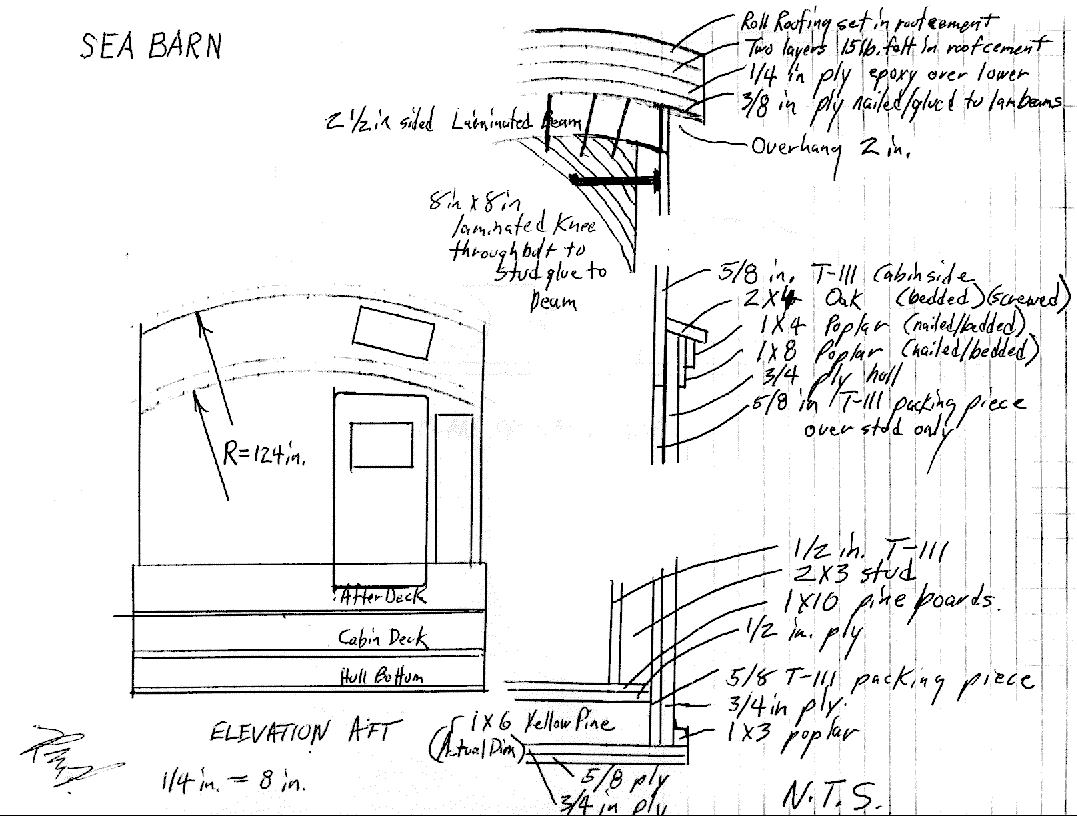 SEA BARN
Roll Roofing set in roofcement
Two layers 15lb. felt in roofcement
1/4 in ply epoxy over lower
3/8 in ply nailed/glued to lambeams
Overhang 2 in.
2 1/2 in sided Laminated Beam
8in x 8in
laminated Knee
through bolt to
stud glue to
beam
5/8 in. T-111 Cabinside
2X4 Oak (bedded)(screwed)
1X4 Poplar (nailed/bedded)
1X8 Poplar (nailed/bedded)
3/4 ply hull
5/8 in T-111 packing piece
over stud only
R=124in.
After Deck
Cabin Deck
Hull Bottom
ELEVATION AFT
1/4 in. = 8 in.
1/2 in. T-111
2X3 stud
1X10 pine boards.
1/2 in. ply
5/8 T-111 packing piece
3/4 in ply.
1X3 poplar
1X6 Yellow Pine
(Actual Dim)
5/8 ply
3/4 in ply
N.T.S.